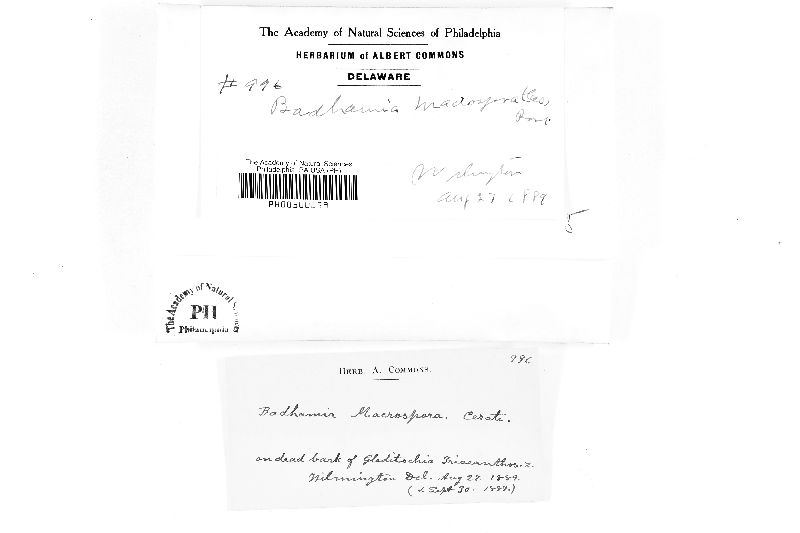 The Academy of Natural Sciences of Philadelphia
HERBARIUM of ALBERT COMMONS
DELAWARE
# 996
Badhamia macrospora (Ces)
Rost
The Academy of Natural Sciences
Philadelphia PA USA (PH)
Wilmington
Aug 27 1889
5
The Academy of Natural
PH
Philadelphia
996
HERB. A. COMMONS.
Badhamia Macrospora. Cesati.
on dead bark of Gleditschia Triacanthos. L.
Wilmington Del. Aug 27. 1889.
(& Sept 30. 1889.)